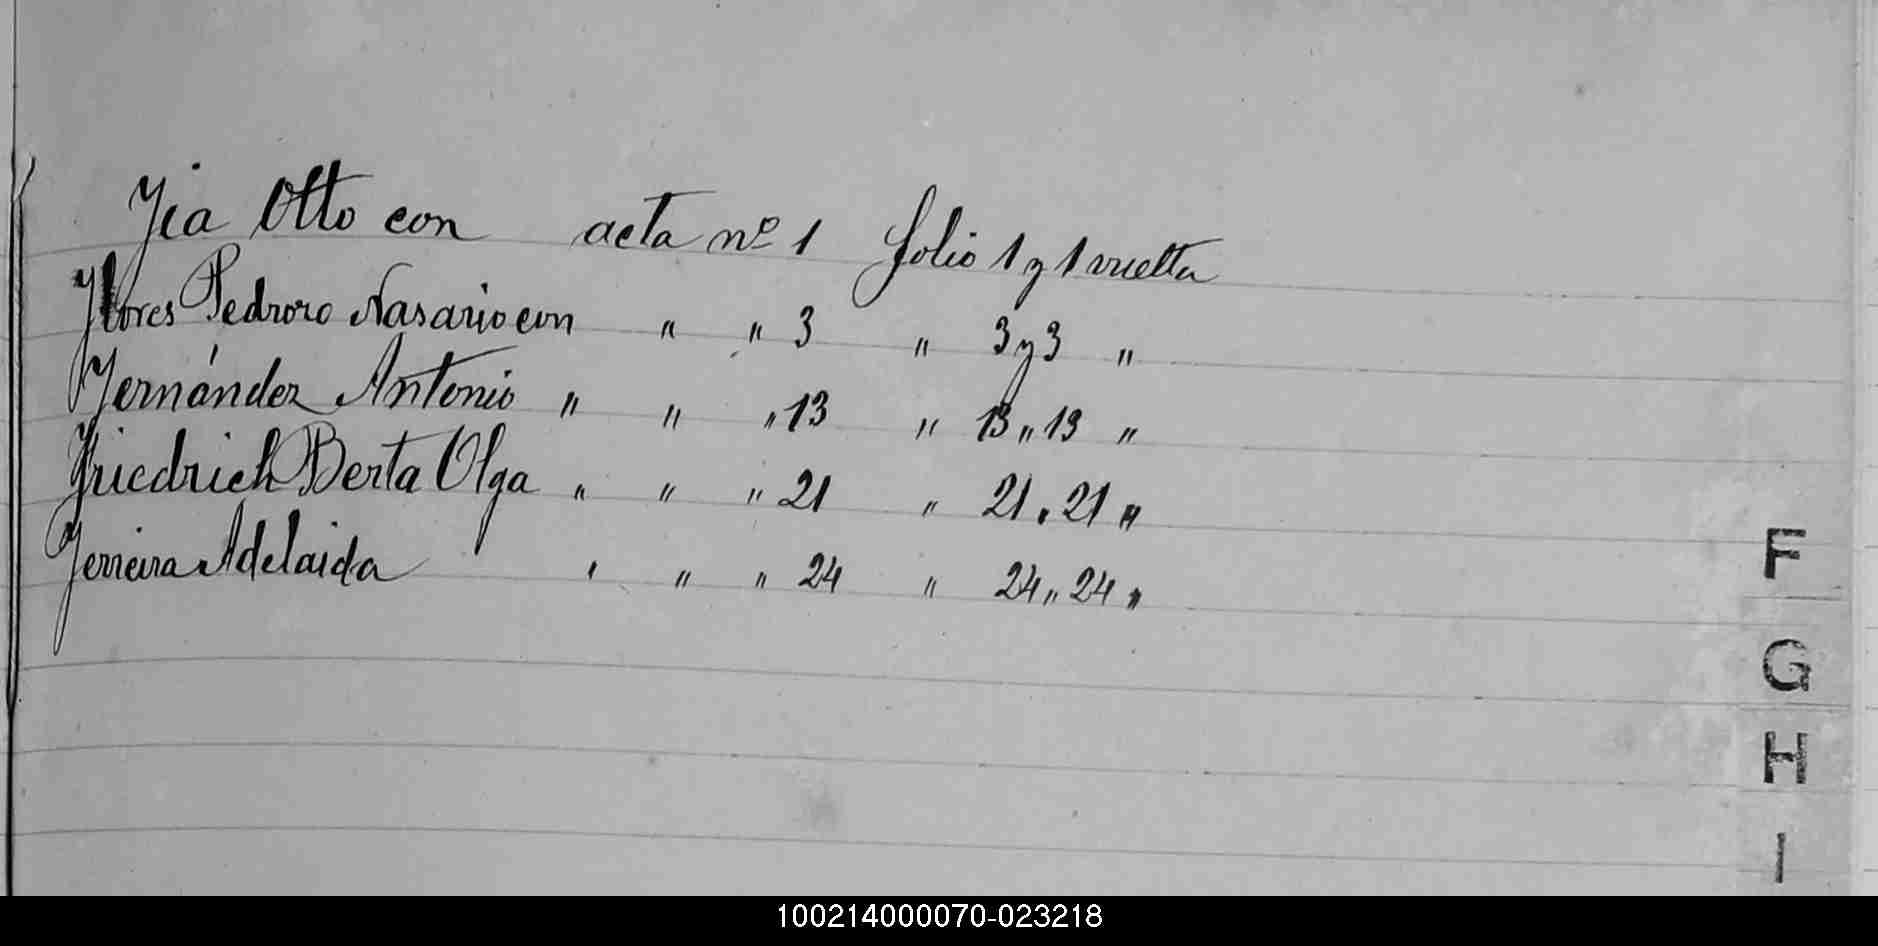 Fia Otto con acta nº 1 folio 1 y 1 vuelta
Flores Pedroro Nasario con " " 3 " 3 y 3 "
Fernández Antonio " " " 13 " 13 " 13 "
Friedrich Berta Olga " " " 21 " 21 " 21 "
Ferreira Adelaida " " " 24 " 24 " 24 "
F
G
H
I
100214000070-023218